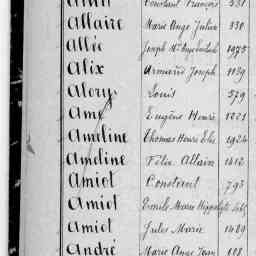 Constant François 330
Allaire Marie Ange Julien 331
Allée Joseph 1975
Alix Armand Joseph 1139
Alory Louis 579
Ame Eugène Henri 1221
Ameline Thomas Henri Elie 1924
Ameline Félix Allain 1412
Amiot Constant 793
Amiot Emile Marie Hippolyte
Amiot Jules Marie 1489
André Marie Ange Jean 118